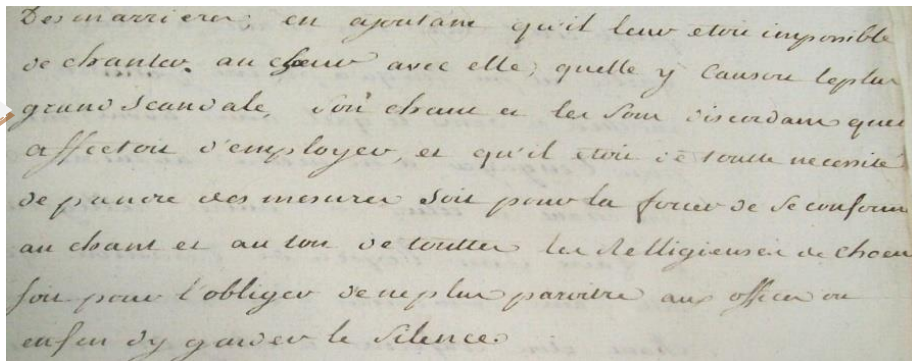 Desmarrieres, en ajoutant qu'il leur etoit impossible
de chanter au choeur avec elle, quelle y causoit le plus
grand scandale, son chant et les sons discordans quel
affectoit d'employer, et qu'il etoit de toutte necessité
de prendre des mesures soit pour la forcer de se conformer
au chant et au ton de touttes les Relligieuses de choeur
soit pour l'obliger de ne plus paroitre aux offices ou
enfin d'y garder le silence.